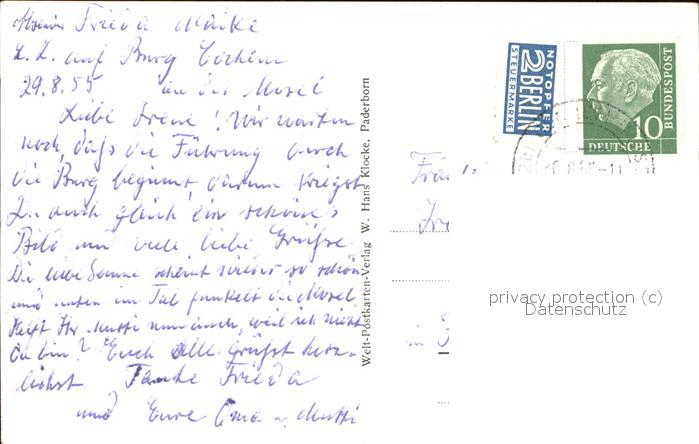 Absender Frieda Maike
z. Z. auf Burg Cochem
29.8.55 an der Mosel
Liebe Irene! Wir warten
noch, daß die Führung durch
die Burg beginnt, darum kriegst
Du auch gleich ein schönes
Bild und viele liebe Grüße.
Die liebe Sonne scheint wieder so schön
und unten im Tal funkelt die Mosel.
Helft Ihr Mutti nun auch, weil ich nicht
da bin? Euch alle grüßt herz-
lichst Tante Frieda
und Eure Oma u. Mutti
Welt-Postkarten-Verlag W. Hans Klocke, Paderborn
NOTOPFER
2 BERLIN
STEUERMARKE
DEUTSCHE
BUNDESPOST
10
in
privacy protection (c)
Datenschutz